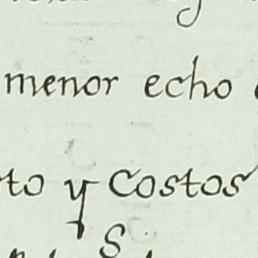 menor echo
to y Costos